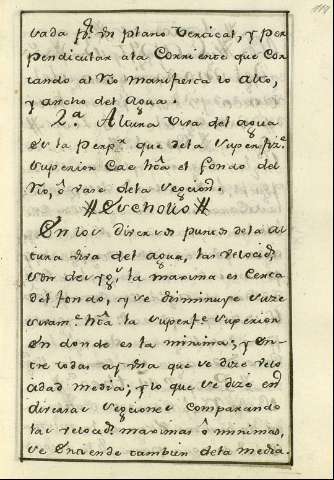 114
vada pr. un plano Vertical, y per
pendicular ala Corriente que Cor
tando al Rio manifiesta lo alto,
y ancho del Agua.
2.a Altura viva del agua
es la Perpr. que dela superfize.
superior Cae hta el fondo del
Rio, ô vase dela Seccion.
//Escholio//
En los diversos puntos dela Al
tura viva del agua, las velocids.
son desygs. la maxima es Cerca
del fondo, y se disminuye suze
sivame. hta la superfe. superior
en donde es la minima; y en
tre todas ay una que se dize velo
cidad media; y lo que se dize en
diversas Secciones comparando
las velocids. maximas ô minimas,
se Entiende tambien dela media.